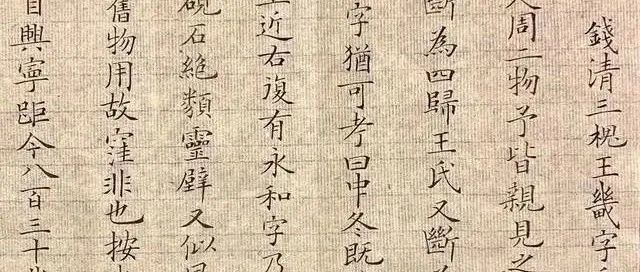 錢清三槐王畿字
周二物予皆親見之
斷為四歸王氏又斷
字猶可考曰中冬既
近右復有永和字乃
硯石絕類靈壁又似
舊物用故窪非也按
興寧距今八百三十